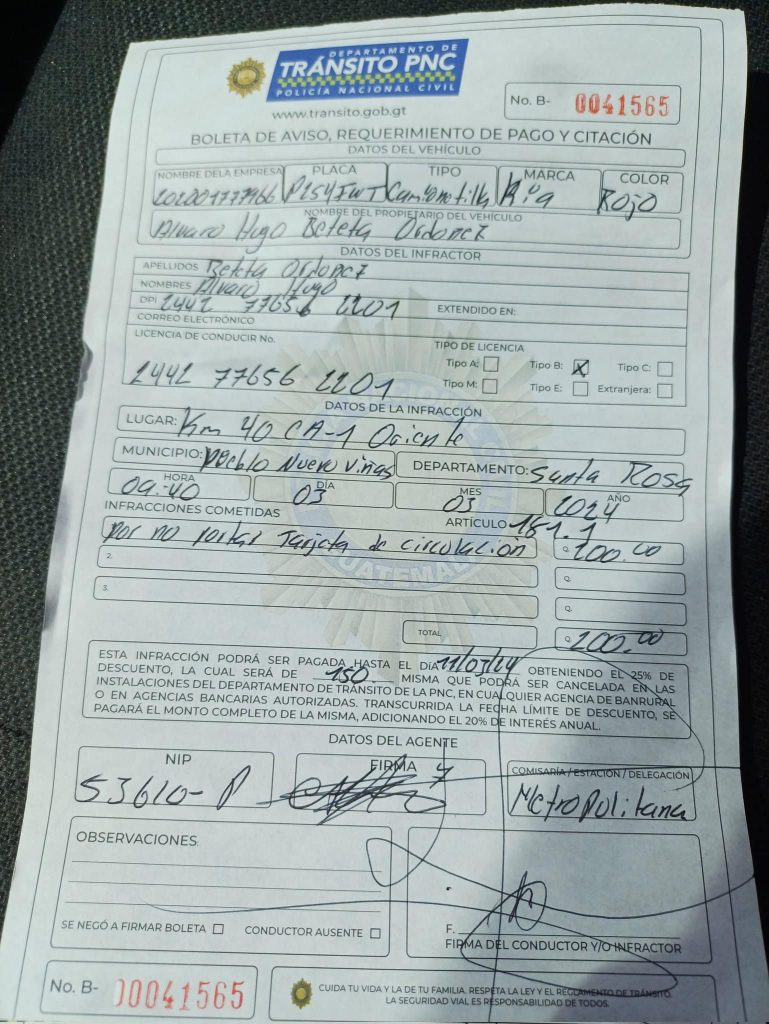 DEPARTAMENTO DE
TRÁNSITO PNC
POLICÍA NACIONAL CIVIL
www.transito.gob.gt
No. B- 0041565
BOLETA DE AVISO, REQUERIMIENTO DE PAGO Y CITACIÓN
DATOS DEL VEHÍCULO
NOMBRE DE LA EMPRESA PLACA TIPO MARCA COLOR
P254FWT Camionetilla Kia Rojo
NOMBRE DEL PROPIETARIO DEL VEHÍCULO
Alvaro Hugo Beteta Ordoñez
DATOS DEL INFRACTOR
APELLIDOS Beteta Ordoñez
NOMBRES Alvaro Hugo
DPI 2442 77656 2201 EXTENDIDO EN:
CORREO ELECTRÓNICO
LICENCIA DE CONDUCIR No. TIPO DE LICENCIA
Tipo A: Tipo B: X Tipo C:
2442 77656 2201 Tipo M: Tipo E: Extranjera:
DATOS DE LA INFRACCIÓN
LUGAR: Km 40 CA-1 Oriente
MUNICIPIO: Pueblo Nuevo Viñas DEPARTAMENTO: Santa Rosa
HORA DÍA MES AÑO
09:40 03 03 2024
INFRACCIONES COMETIDAS ARTÍCULO 181.1
por no portar Tarjeta de circulación Q. 200.00
2. Q.
3. Q.
TOTAL Q. 200.00
ESTA INFRACCIÓN PODRÁ SER PAGADA HASTA EL DÍA 11/03/24 OBTENIENDO EL 25% DE
DESCUENTO, LA CUAL SERÁ DE 150 MISMA QUE PODRÁ SER CANCELADA EN LAS
INSTALACIONES DEL DEPARTAMENTO DE TRÁNSITO DE LA PNC, EN CUALQUIER AGENCIA DE BANRURAL
O EN AGENCIAS BANCARIAS AUTORIZADAS. TRANSCURRIDA LA FECHA LÍMITE DE DESCUENTO, SE
PAGARÁ EL MONTO COMPLETO DE LA MISMA, ADICIONANDO EL 20% DE INTERÉS ANUAL.
DATOS DEL AGENTE
NIP FIRMA COMISARÍA / ESTACIÓN / DELEGACIÓN
53610-P Metropolitana
OBSERVACIONES:
SE NEGÓ A FIRMAR BOLETA CONDUCTOR AUSENTE
F.
FIRMA DEL CONDUCTOR Y/O INFRACTOR
No. B- 00041565
CUIDA TU VIDA Y LA DE TU FAMILIA. RESPETA LA LEY Y EL REGLAMENTO DE TRÁNSITO.
LA SEGURIDAD VIAL ES RESPONSABILIDAD DE TODOS.